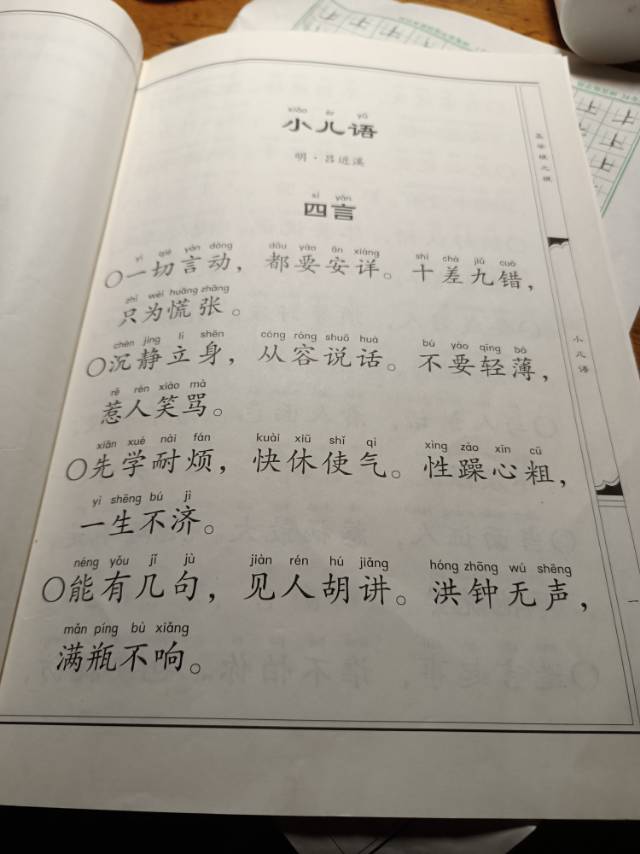 xiǎo ér yǔ
小儿语
明·吕近溪
sì yán
四言
yí qiè yán dòng dōu yào ān xiáng shí chā jiǔ cuò
○一切言动，都要安详。十差九错，
zhǐ wèi huāng zhāng
只为慌张。
chén jìng lì shēn cóng róng shuō huà bú yào qīng bó
○沉静立身，从容说话。不要轻薄，
rě rén xiào mà
惹人笑骂。
xiān xué nài fán kuài xiū shǐ qì xìng zào xīn cū
○先学耐烦，快休使气。性躁心粗，
yì shēng bú jì
一生不济。
néng yǒu jǐ jù jiàn rén hú jiǎng hóng zhōng wú shēng
○能有几句，见人胡讲。洪钟无声，
mǎn píng bù xiǎng
满瓶不响。
小儿语
一